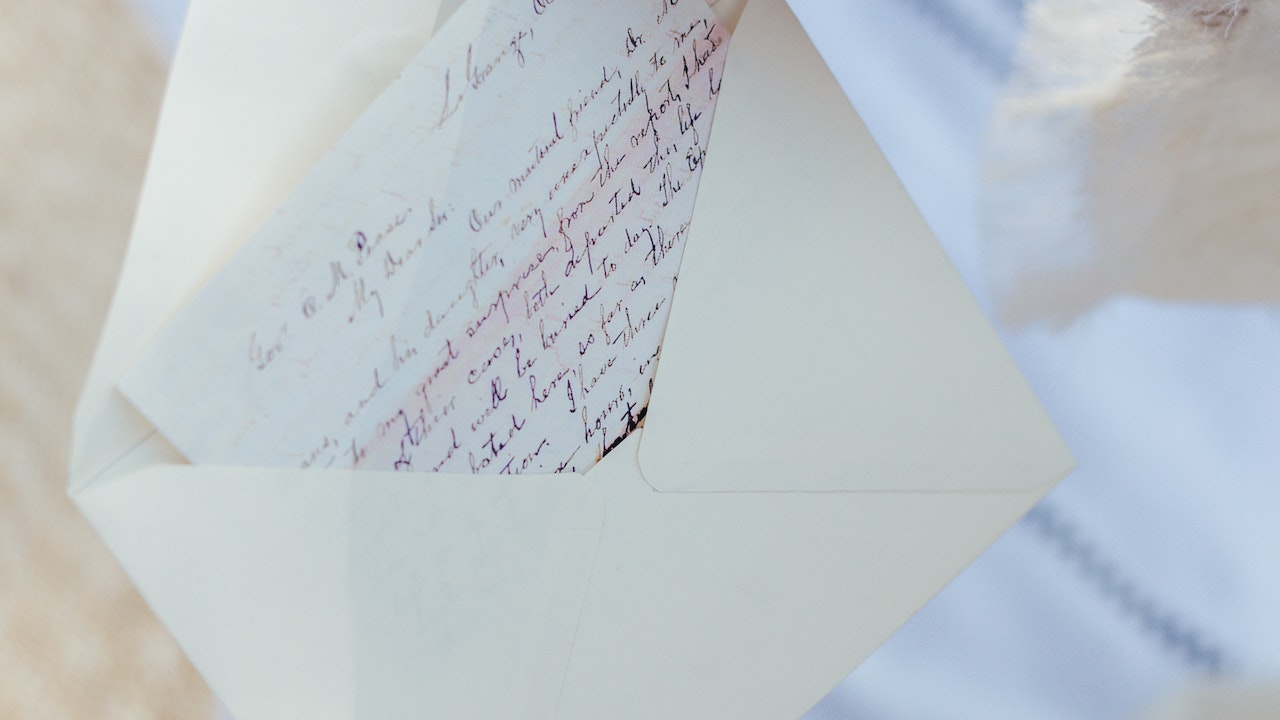 LaGrange,
Gov. E. M. Pease.
My Dear Sir:
Our mutual friend, Dr.
and his daughter, very unexpectedly to me,
to my great surprise, from the report, I had
of their case, both departed this life
and will be buried to day. The Ep
bated here, so far as there
tion. I have three
hours, in
that